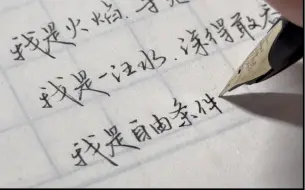 我是火焰
我是一汪水 深得敢
我是自由条件